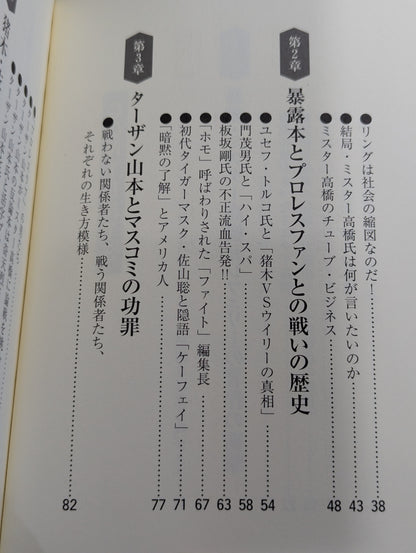 ●リングは社会の縮図なのだ！ 38
●結局・ミスター高橋氏は何が言いたいのか 43
●ミスター高橋のチューブ・ビジネス 48
第2章
暴露本とプロレスファンとの戦いの歴史
●ユセフ・トルコ氏と「猪木VSウイリーの真相」 54
●門茂男氏と「ハイ・スパ」 58
●板坂剛氏の不正流血告発!! 63
●「ホモ」呼ばわりされた「ファイト」編集長 67
●初代タイガーマスク・佐山聡と隠語「ケーフェイ」 71
●「暗黙の了解」とアメリカ人 77
第3章
ターザン山本とマスコミの功罪
●戦わない関係者たち、戦う関係者たち、
それぞれの生き方模様 82